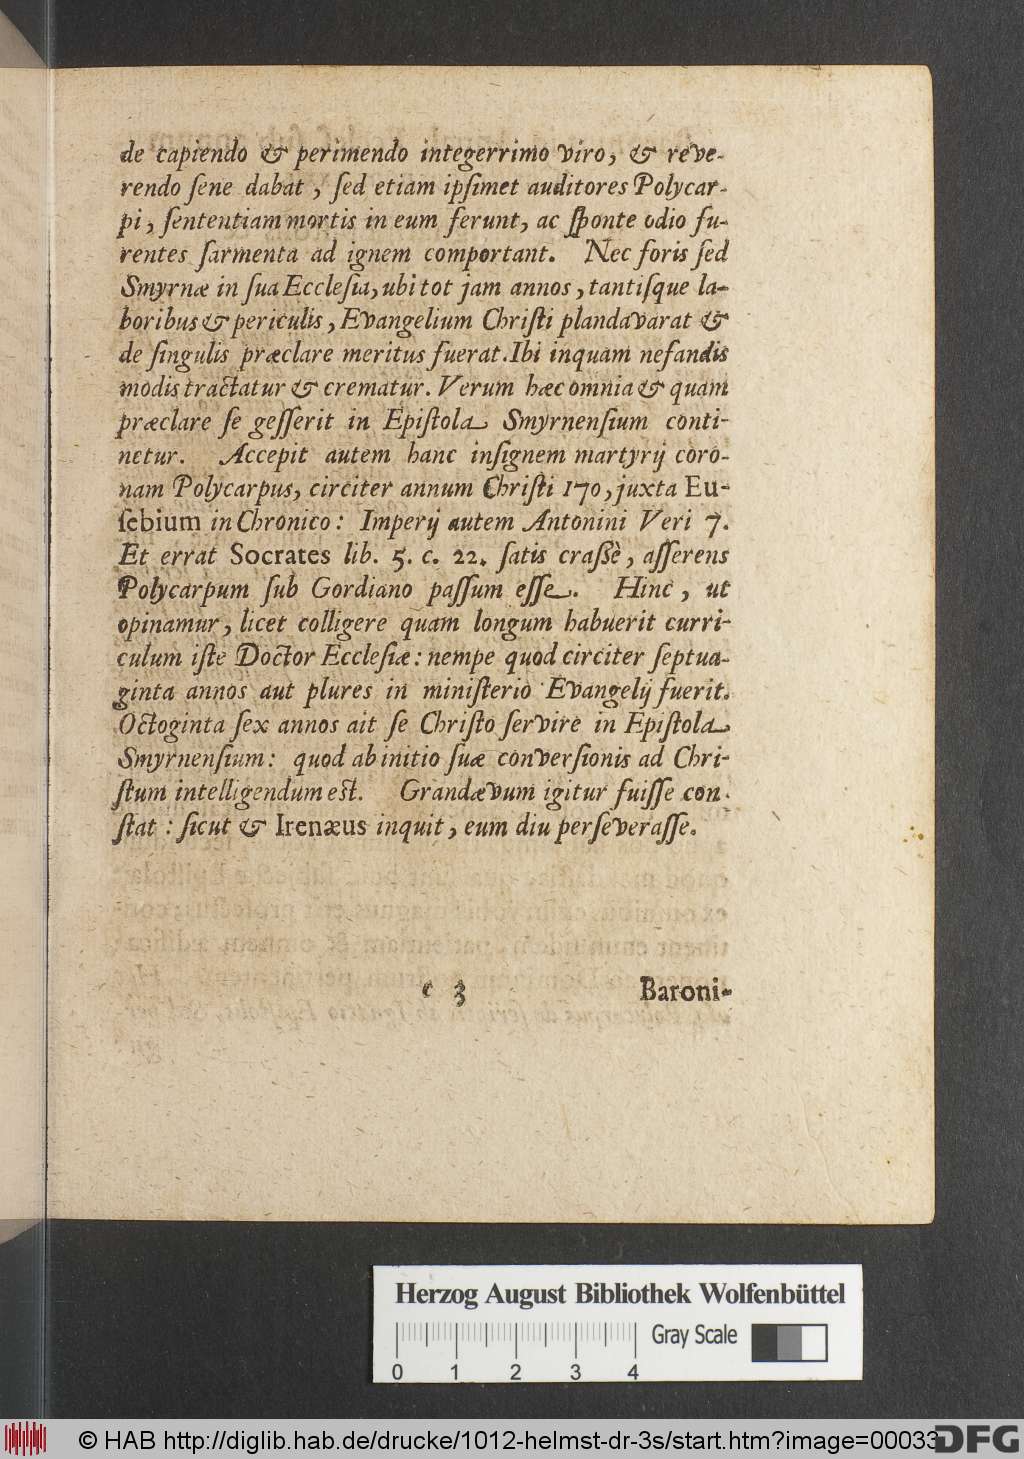 de capiendo & perimendo integerrimo viro, & reve-
rendo ſene dabat, ſed etiam ipſimet auditores Polycar-
pi, ſententiam mortis in eum ferunt, ac ſponte odio fu-
rentes ſarmenta ad ignem comportant. Nec foris ſed
Smyrnæ in ſua Eccleſia, ubi tot jam annos, tantiſque la-
boribus & periculis, Evangelium Chriſti plandavarat &
de ſingulis præclare meritus fuerat. Ibi inquam nefandis
modis tractatur & crematur. Verum hæc omnia & quam
præclare ſe geſſerit in Epiſtola Smyrnenſium conti-
netur. Accepit autem hanc inſignem martyrij coro-
nam Polycarpus, circiter annum Chriſti 170, juxta Eu-
ſebium in Chronico: Imperij autem Antonini Veri 7.
Et errat Socrates lib. 5. c. 22. ſatis craſſè, aſſerens
Polycarpum ſub Gordiano paſſum eſſe. Hinc, ut
opinamur, licet colligere quam longum habuerit curri-
culum iſte Doctor Eccleſiæ: nempe quod circiter ſeptua-
ginta annos aut plures in miniſterio Evangelij fuerit.
Octoginta ſex annos ait ſe Chriſto ſervire in Epiſtola
Smyrnenſium: quod ab initio ſuæ converſionis ad Chri-
ſtum intelligendum eſt. Grandævum igitur fuiſſe con-
ſtat: ſicut & Irenæus inquit, eum diu perſeveraſſe.
c 3 Baroni-
Herzog August Bibliothek Wolfenbüttel
Gray Scale
0 1 2 3 4
© HAB http://diglib.hab.de/drucke/1012-helmst-dr-3s/start.htm?image=00033
DFG